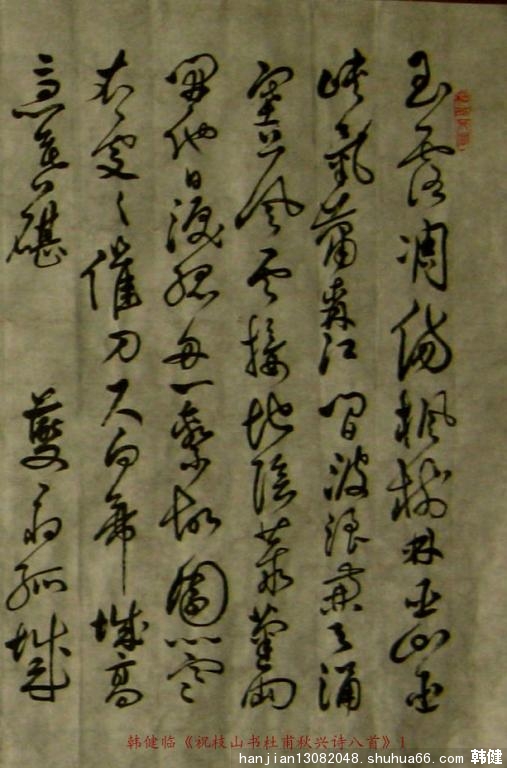 玉露凋傷楓樹林巫山巫
峽氣蕭森江間波浪兼天涌
塞上風雲接地陰叢菊兩
開他日淚孤舟一繫故園心寒
衣處々催刀尺白帝城高
急暮碪 夔府孤城
韩健临《祝枝山书杜甫秋兴诗八首》1
hanjian13082048. shuhua66.com 韩健